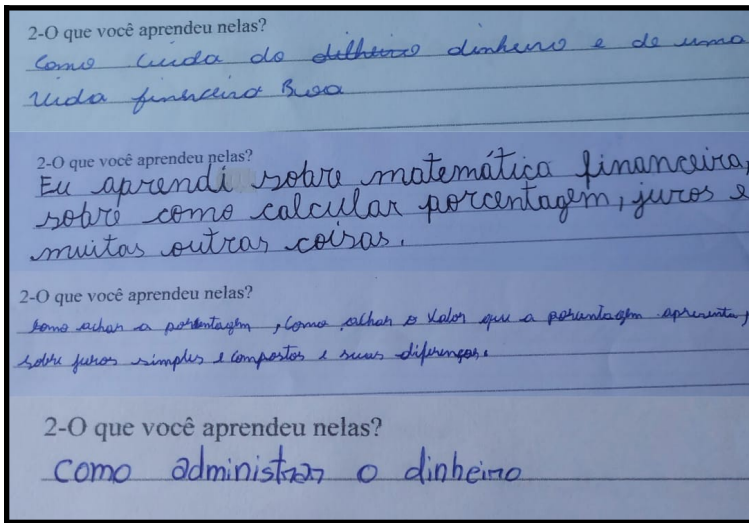 2-O que você aprendeu nelas?
Como Cuida do dilheiro dinheiro e de uma
vida finhceira Buoa
2-O que você aprendeu nelas?
Eu aprendi sobre matemática financeira,
sobre como calcular porcentagem, juros e
muitas outras coisas.
2-O que você aprendeu nelas?
Como achar a porcentagem, como achar o valor que a porcentagem apresenta,
sobre juros simples e compostos e suas diferenças.
2-O que você aprendeu nelas?
como administrar o dinheiro